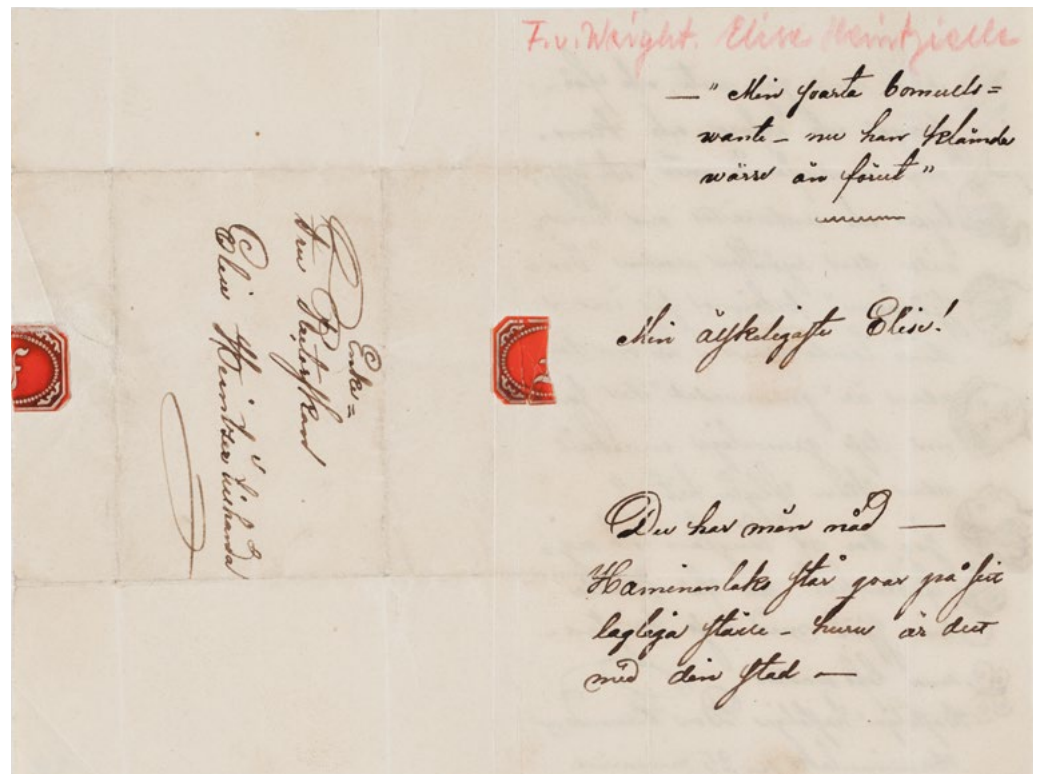 F.v. Wright. Elise Heintzielle
— " Min svarta bomulls=
wante – nu han klämde
wärre än förut "
Min älskeligaste Elise!
Du har mån nåd —
Haminanlaks står qvar på sitt
lagliga ställe – huru är det
med din stad —
Enke=
Fru
Elise